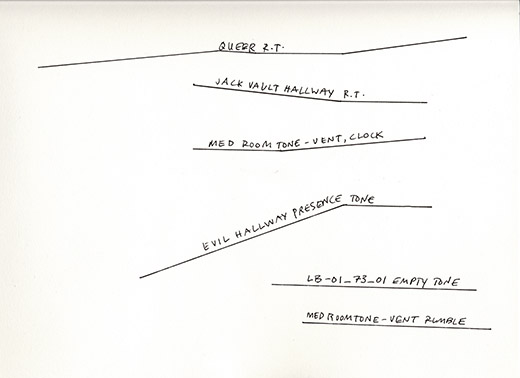 QUEER R.T.
JACK VAULT HALLWAY R.T.
MED ROOM TONE - VENT, CLOCK
EVIL HALLWAY PRESENCE TONE
LB-01_73_01 EMPTY TONE
MED ROOMTONE - VENT RUMBLE